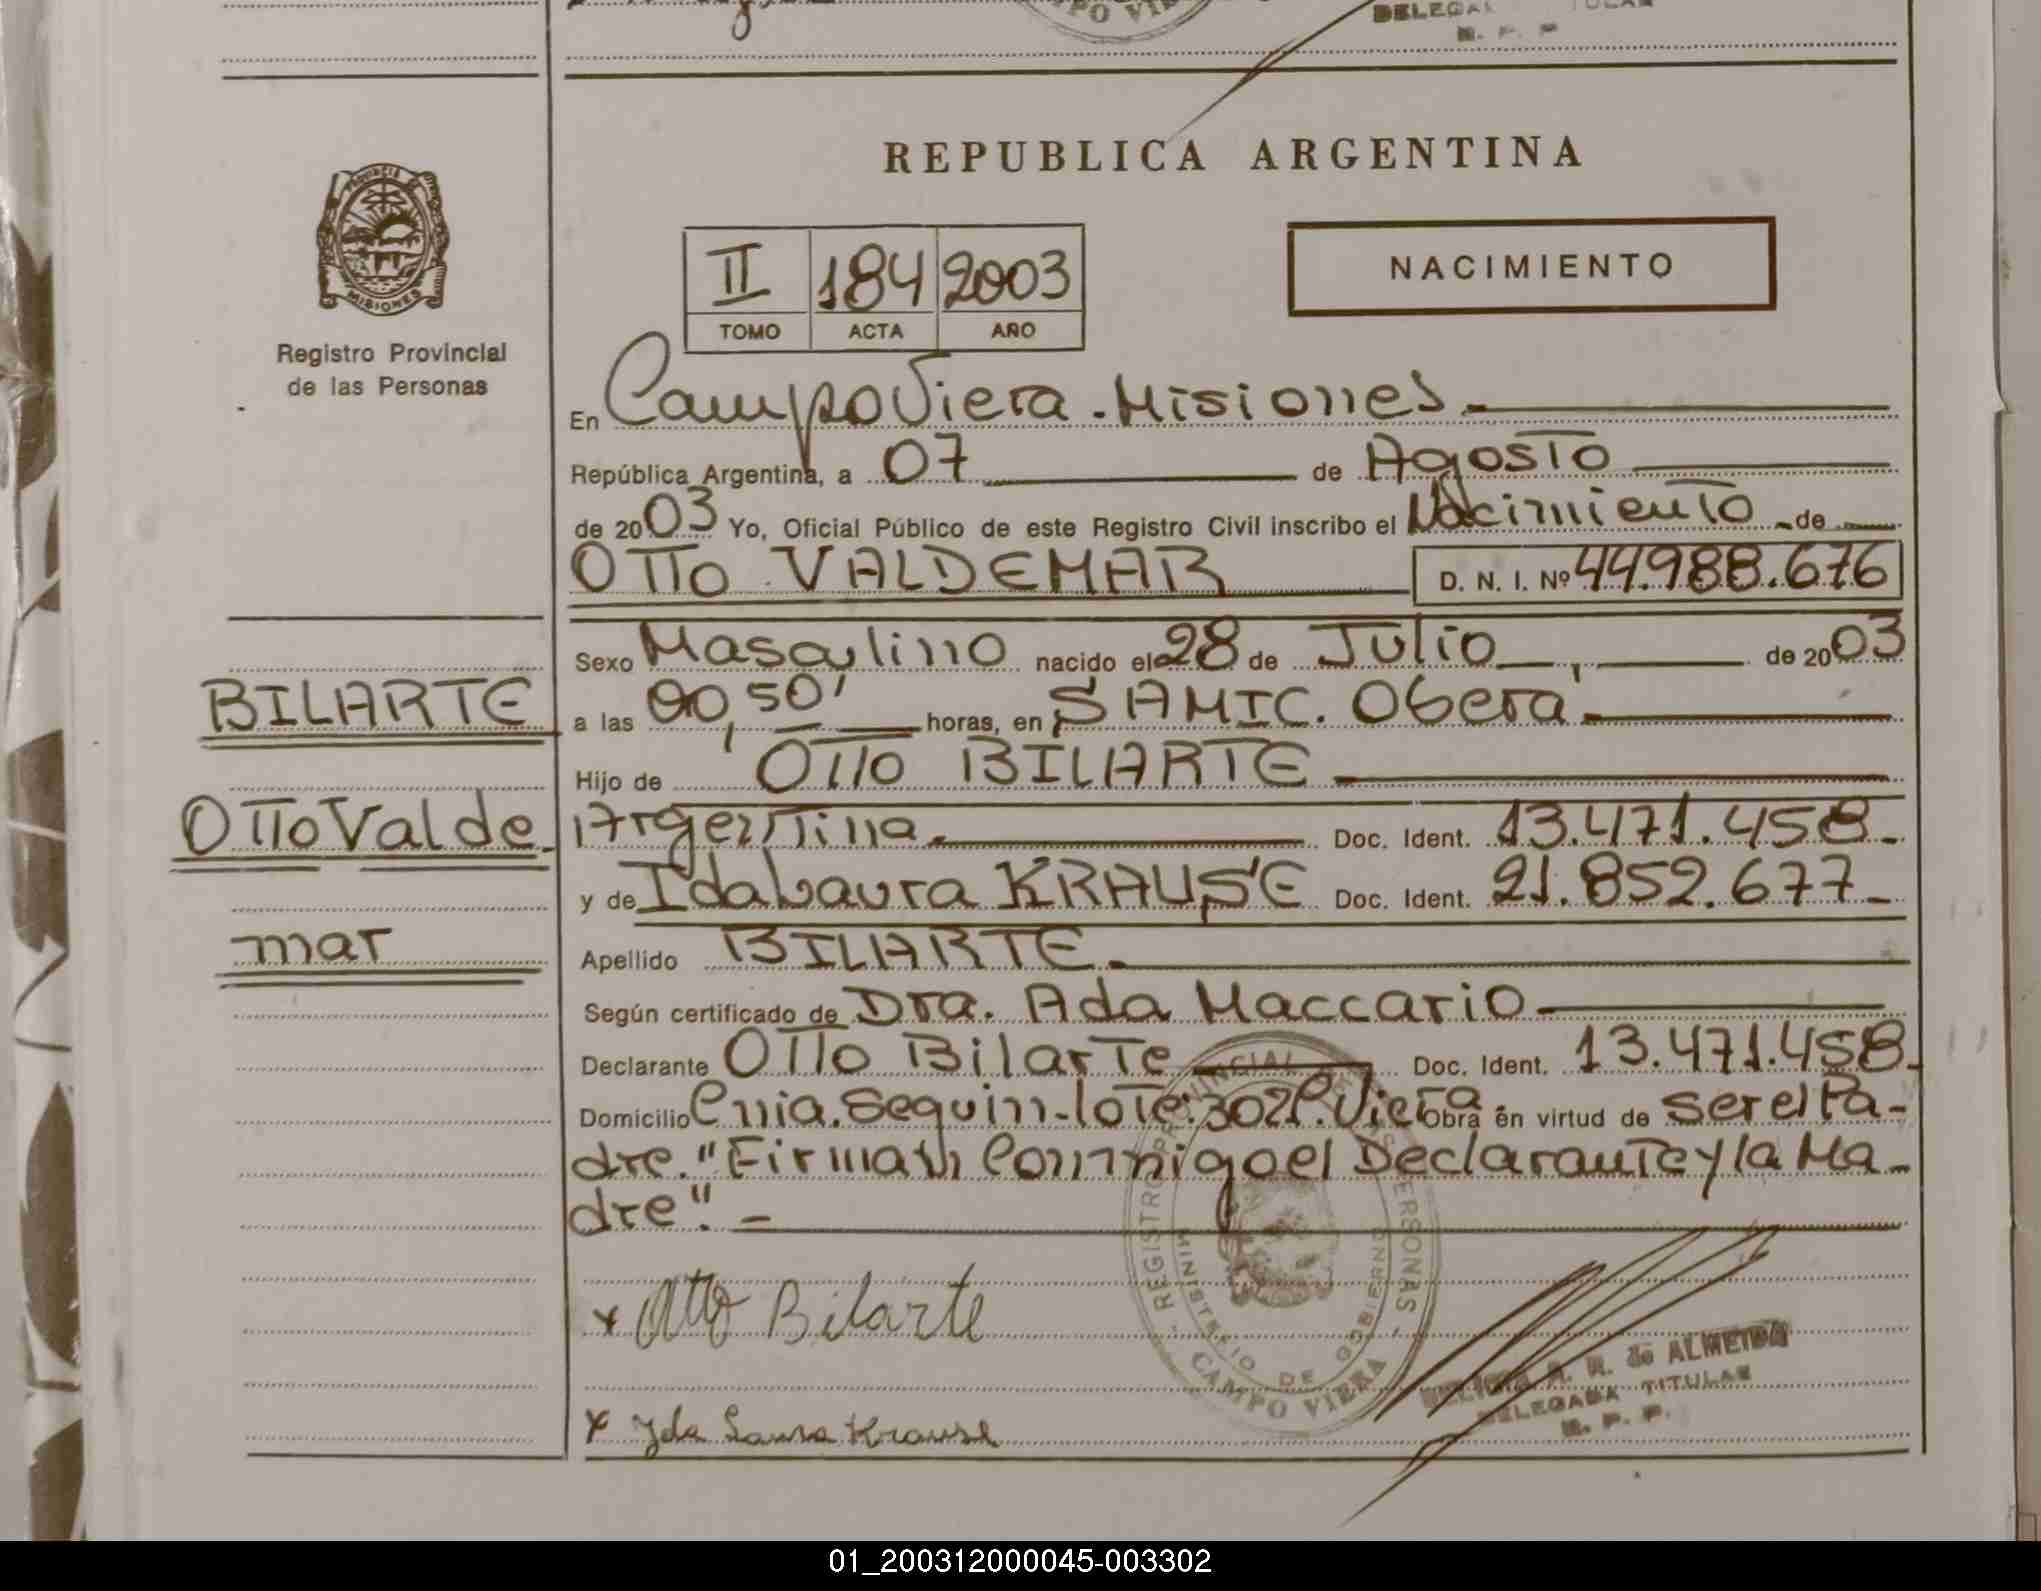 REPUBLICA ARGENTINA
PROVINCIA DE
MISIONES
Registro Provincial
de las Personas
II 184 2003
TOMO ACTA AÑO
NACIMIENTO
En Campo Viera - Misiones.
República Argentina, a 07 de Agosto
de 2003 Yo, Oficial Público de este Registro Civil inscribo el Nacimiento de
OTTO VALDEMAR D. N. I. Nº 44.988.676
Sexo Masculino nacido el 28 de Julio de 2003
BILARTE
a las 00,50' horas, en SAMIC. Obera.
Hijo de OTTO BILARTE
Otto Valde
Argentina. Doc. Ident. 13.471.458-
y de Ida Laura KRAUSE Doc. Ident. 21.852.677-
mar
Apellido BILARTE.
Según certificado de Dra. Ada Maccario
Declarante Otto Bilarte Doc. Ident. 13.471.458-
Domicilio Cnia. Seguin-lote:302 C. Viera. Obra en virtud de ser el Pa-
dre. "Firman Conmigo el Declarante y la Ma-
dre". -
REGISTRO PROVINCIAL DE LAS PERSONAS
MINISTERIO DE GOBIERNO
CAMPO VIERA
x Otto Bilarte
A. R. de ALMEIDA
DELEGADA TITULAR
R. P. P.
x Ida Laura Krause
01_200312000045-003302